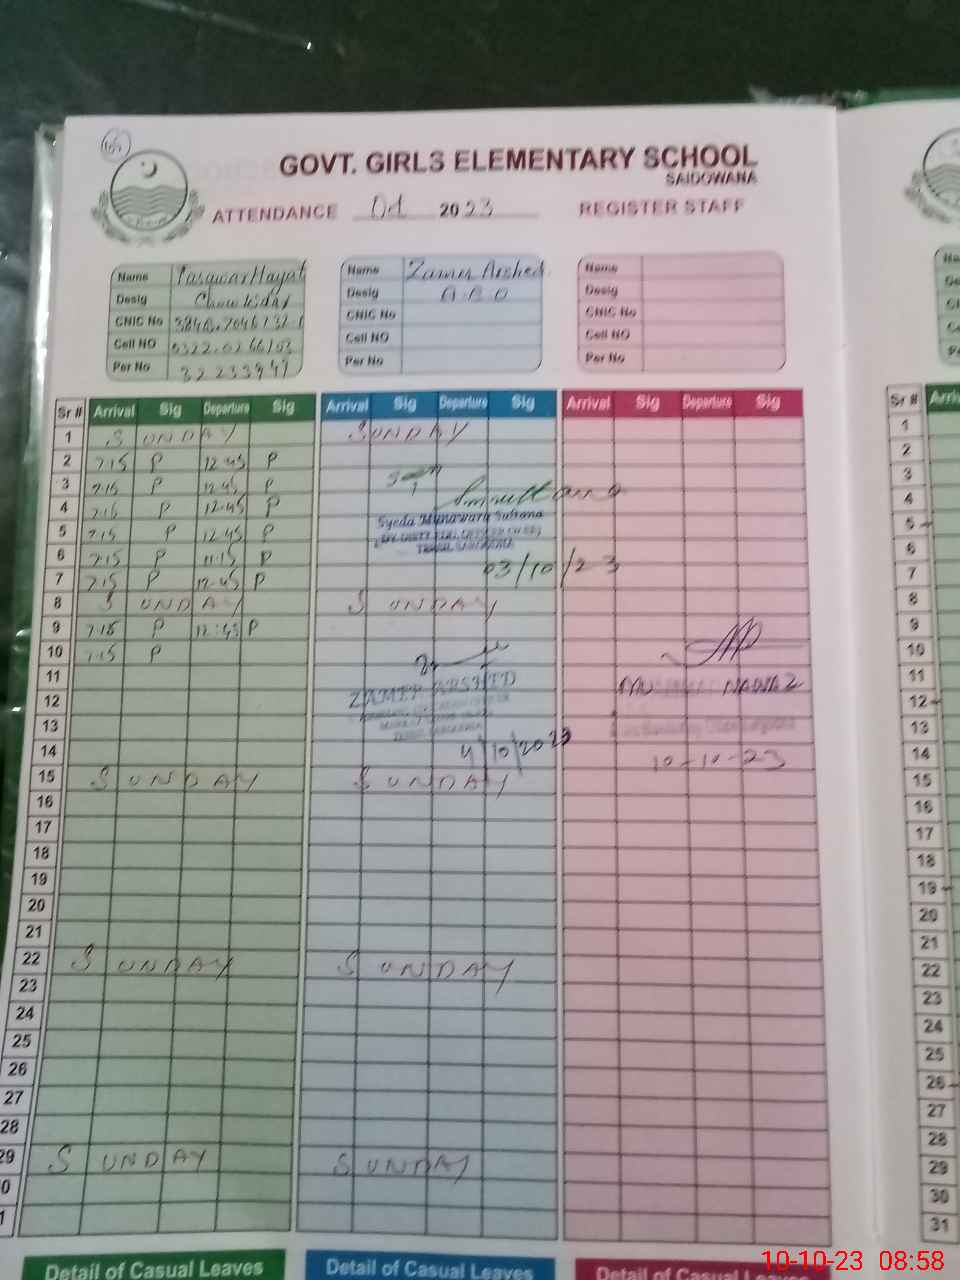 GOVT. GIRLS ELEMENTARY SCHOOL
SAIDOWANA
ATTENDANCE Oct 2023 REGISTER STAFF
Name Hayat
Desig Chowkidar
CNIC No
Cell NO
Per No
Name Zamer Arshed
Desig A.E.O
CNIC No
Cell NO
Per No
Name
Desig
CNIC No
Cell NO
Per No
Sr # Arrival Sig Departure Sig Arrival Sig Departure Sig Arrival Sig Departure Sig
1 SUNDAY SUNDAY
2 7.15 P 12.45 P
3 7.15 P 12.45 P
4 7.15 P 12.45 P
5 7.15 P 12.45 P
6 7.15 P 11.15 P
7 7.15 P 12.45 P
8 SUNDAY SUNDAY
9 7.15 P 12:45 P
10 7.15 P
11
12
13
14
15 SUNDAY SUNDAY
16
17
18
19
20
21
22 SUNDAY SUNDAY
23
24
25
26
27
28
29 SUNDAY SUNDAY
0
1
Syeda Munawara Sultana
03/10/23
ZAMER ARSHED
4/10/2023
NAWAZ
10-10-23
Detail of Casual Leaves Detail of Casual Leaves Detail of Casual Leaves
Sr #
1
2
3
4
5
6
7
8
9
10
11
12
13
14
15
16
17
18
19
20
21
22
23
24
25
26
27
28
29
30
31
10-10-23 08:58